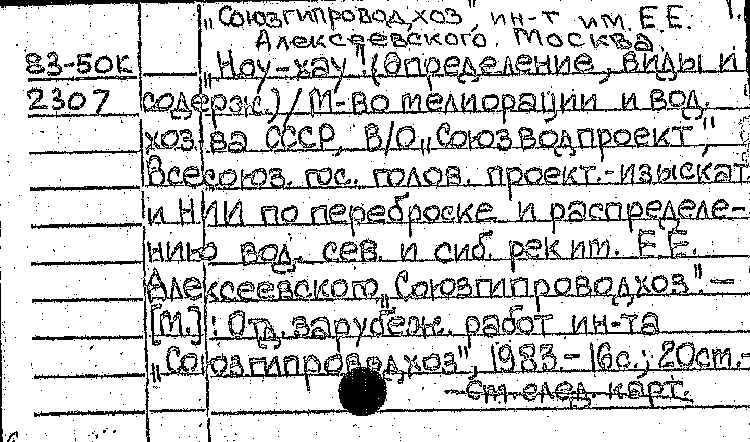 "Союзгипроводхоз", ин-т им. Е.Е.
Алексеевского. Москва.
83-50К "Ноу-хау" (Определение, виды и
2307 содерж.) / М-во мелиорации и вод.
хоз-ва СССР, В/О "Союзводпроект",
Всесоюз. гос. голов. проект.-изыскат.
и НИИ по переброске и распределе-
нию вод. сев. и сиб. рек им. Е.Е.
Алексеевского "Союзгипроводхоз". —
[М.] : Отд. зарубеж. работ ин-та
"Союзгипроводхоз", 1983. - 16 с.; 20 см. -
- См. след. карт.